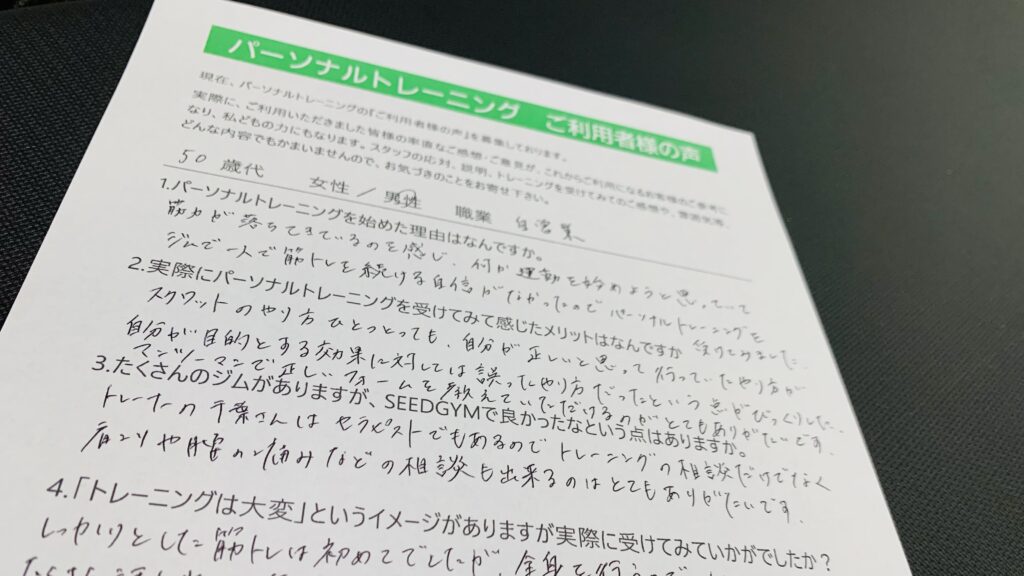 パーソナルトレーニング ご利用者様の声
現在、パーソナルトレーニングの「ご利用者様の声」を募集しております。
実際に、ご利用いただきました皆様の率直なご感想・ご意見が、これからご利用になるお客様のご参考に
なり、私どもの力にもなります。スタッフの応対、説明、トレーニングを受けてみてのご感想や、雰囲気等、
どんな内容でもかまいませんので、お気づきのことをお寄せ下さい。
50 歳代 女性 / 男性 職業 自営業
1.パーソナルトレーニングを始めた理由はなんですか。
筋力が落ちてきているのを感じ、何か運動を始めようと思っていて
ジムで一人で筋トレを続ける自信がなかったので パーソナルトレーニングを
受けてみました。
2.実際にパーソナルトレーニングを受けてみて感じたメリットはなんですか
スクワットのやり方 ひとつとっても、自分が正しいと思って行っていたやり方が
自分が目的とする効果に対しては誤ったやり方だったという点がびっくりした。
マンツーマンで正しいフォームを教えていただけるのがとてもありがたいです。
3.たくさんのジムがありますが、SEEDGYMで良かったなという点はありますか。
トレーナーの千葉さんは セラピストでもあるので トレーニングの相談だけでなく
肩こりや腰の痛みなどの相談も出来るのはとてもありがたいです。
4.「トレーニングは大変」というイメージがありますが実際に受けてみていかがでしたか?
しっかりとした筋トレは初めてでしたが、全身を行うので